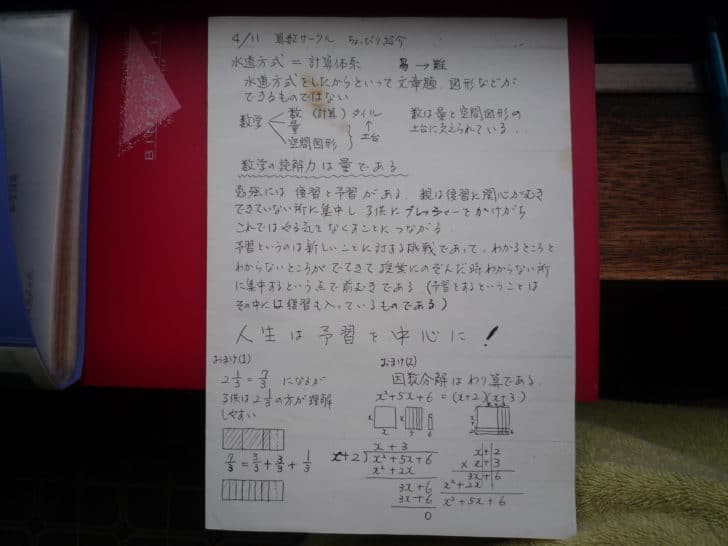 4/11 算数サークル ちょっぴり紹介
水道方式 = 計算体系 易 → 難
水道方式をしたからといって文章題、図形などが
できるものではない
数学 数 (計算) タイル
量
空間図形
↑
土台
数は量と空間図形の
土台に支えられている。
数学の読解力は量である
勉強には復習と予習がある。親は復習に関心がむき
できていない所に集中し、子供にプレッシャーをかけがち
これではやる気をなくすことにつながる
予習というのは新しいことに対する挑戦であって、わかるところと
わからないところがでてきて授業にのぞんだ時わからない所
に集中するという点で前むきである (予習をするということは
その中には復習も入っているものである)
人生は予習を中心に!
おまけ(1)
2 1/3 = 7/3 になるが
子供は 2 1/3 の方が理解
しやすい
7/3 = 3/3 + 3/3 + 1/3
おまけ(2)
因数分解はわり算である
x²+5x+6 = (x+2)(x+3)
x + 3
x+2) x²+5x+6
x²+2x
3x+6
3x+6
0
x + 2
× x + 3
3x+6
x²+2x
x²+5x+6